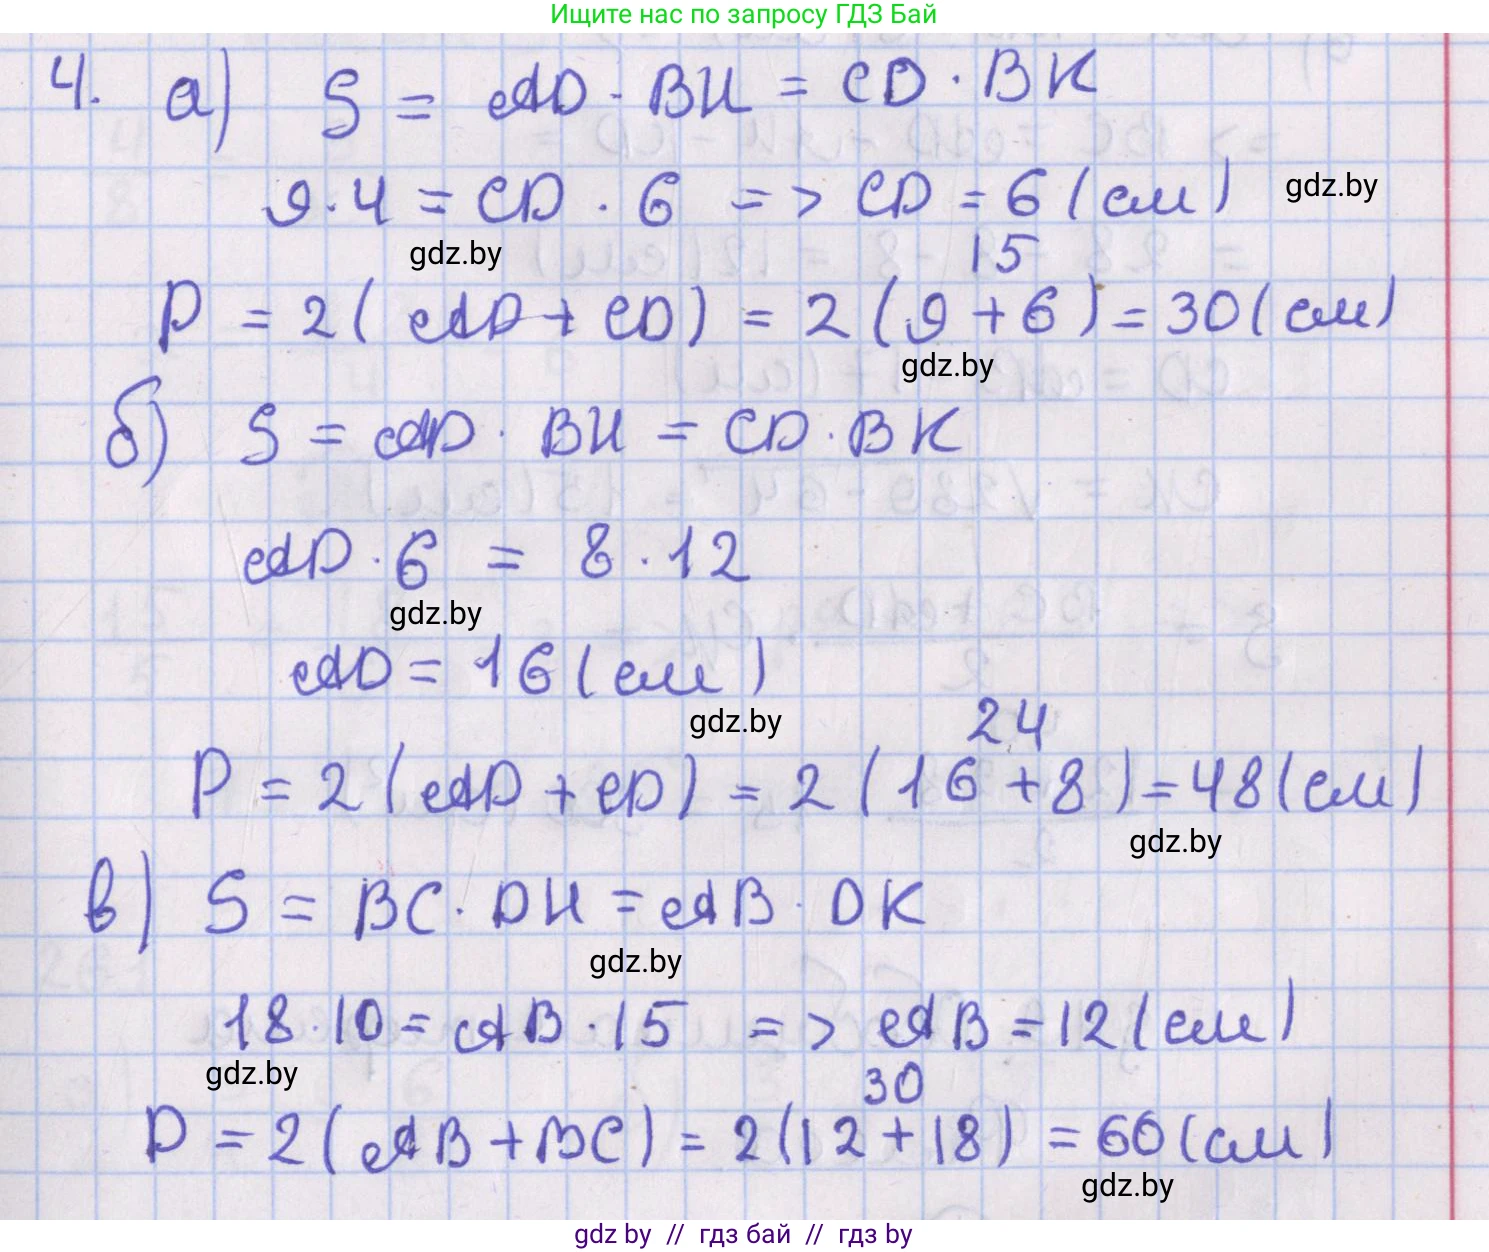 Ищите нас по запросу ГДЗ Бай
4. а) S = AD · BH = CD · BK
9 · 4 = CD · 6 => CD = 6 (см)
gdz.by
gdz.by
15
P = 2 (AD + CD) = 2 (9 + 6) = 30 (см)
gdz.by
б) S = AD · BH = CD · BK
AD · 6 = 8 · 12
gdz.by
AD = 16 (см)
gdz.by
24
P = 2 (AD + CD) = 2 (16 + 8) = 48 (см)
gdz.by
в) S = BC · DH = AB · DK
gdz.by
18 · 10 = AB · 15 => AB = 12 (см)
gdz.by
30
P = 2 (AB + BC) = 2 (12 + 18) = 60 (см)
gdz.by
gdz by // гдз бай // гдз by